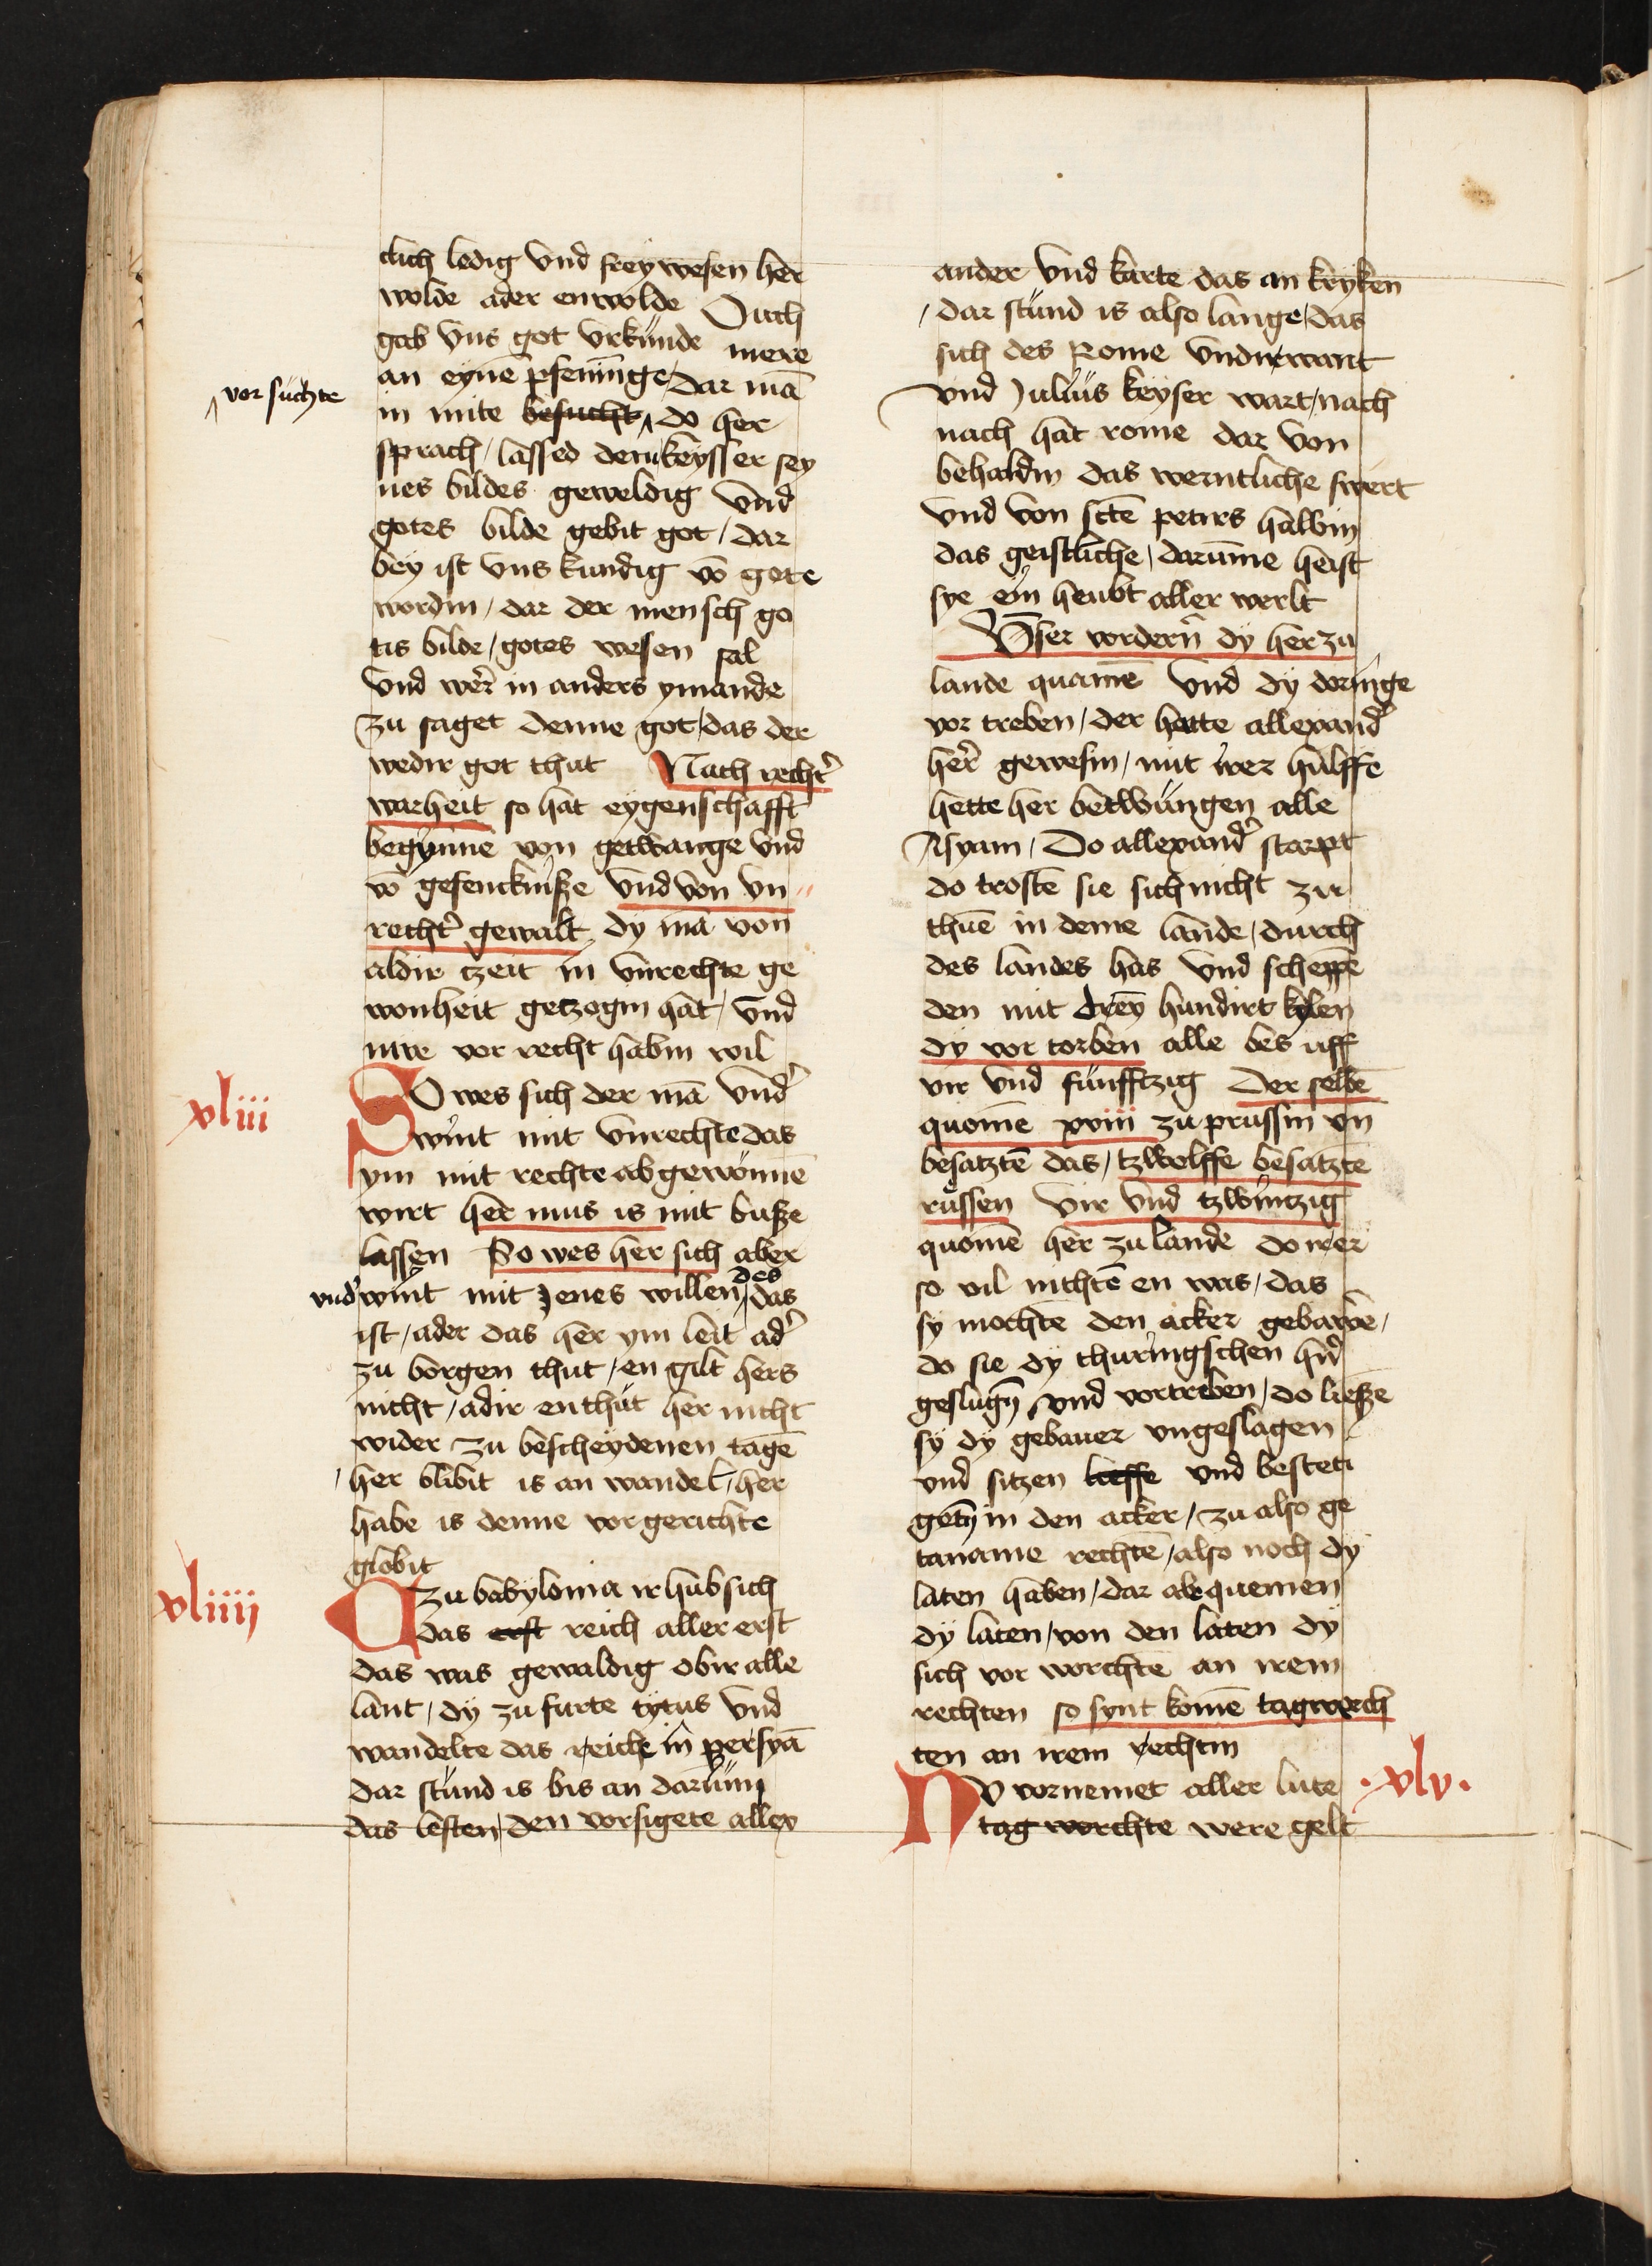 clich ledig vnd frey wesen her
wolde ader enwolde Ouch
gab vns got vrkunde mere
an eyne͞ pfenni͞nge / dar ma͞
vor suchte
in mite besucht ʌ do her
sprach / lassed dem keysser sey
nes bildes geweldig vnd
gotes bilde gebit got / dar
bey ist vns kundig vo͞ gote
wordin / dar der mensch go
tis bilde / gotes wesen sal
vnd wer͛ in anders ymande
zu saget denne got / das der
wedir got thut Nach recht͛
warheit so hat eygenschafft
begynne͞ von getwange vnd
vo͞ gefencknisze vnd von vn
recht͛ gewalt dy ma͞ von
aldir tzeit in vnrechte ge
wonheit getzogin hat / vnd
nwe vor recht habin wil
xliii
SO wes sich der ma͞ vnd͛
wint mit vnrechte das
ym mit rechte ab gewonne͞
wirt her mus is mit busze
lassen So wes her sich aber
vnd͛ wint mit Jenes willen des das
ist / ader das her ym leit ad͛
zu borgen thut / en gilt hers
nicht / adir enthut her nicht
wider zu bescheydenen tage͞
/ her blibit is an wandel / her
habe is denne vor gerichte
globit
xliiij
CZu babylonia ir hub sich
das erst reich aller erst
das was gewaldig obir alle
lant / dy zu furte tytus vnd
wandelte das reiche in persya͞
dar stund is bis an darium
das lesten / den vorsigete allex
ander vnd karte das an kryken
/ dar stund is also lange / das
sich des Rome vndirwant
vnd Julius keyser wart / nach
nach hat rome dar von
behaldin das werntliche swert
vnd von scte͞ petirs halbin
das geistliche / daru͞me heist
sye ein heubt aller werlt
Vnser vordern͛ dy her zu
lande quame͞ vnd dy doringe
vor treben / der hatte allexand͛
her͛ gewesin / mit irer hulffe
hette her betwungen alle
Asyam / Do allexand͛ starpt
do troste͞ sie sich nicht zu
thue͞ in deme lande / durch
des landes has vnd scheppe͞
den mit drey hundirt kylen
dy vor torben alle bes uff
vir vnd funfftzig Der selbe͞
quome͞ xviii zu prussin vn͞
besatzte͞ das / tzwelffe besatzte
russen vir vnd tzwintzig
quome͞ her zu lande do irer
so vil nichte͞ en was / das
sy mochte͞ den acker gebawe͞ /
do sie dy thuringschen h͛n
geslug͞n vnd vortreben / do liesze
sy dy gebauer vngeslagen
vnd sitzen liesse vnd besteti
get͞n in den acker / zu also ge
taname rechte͞ / also noch dy
laten haben / dar abe quemen
dy laten / von den laten dy
sich vor worchte͞ an irem
rechten so synt kome͞ tagwerch
ten an irem rechtin
·xlv·
NV vornemet aller lute
tag worchte were gelt